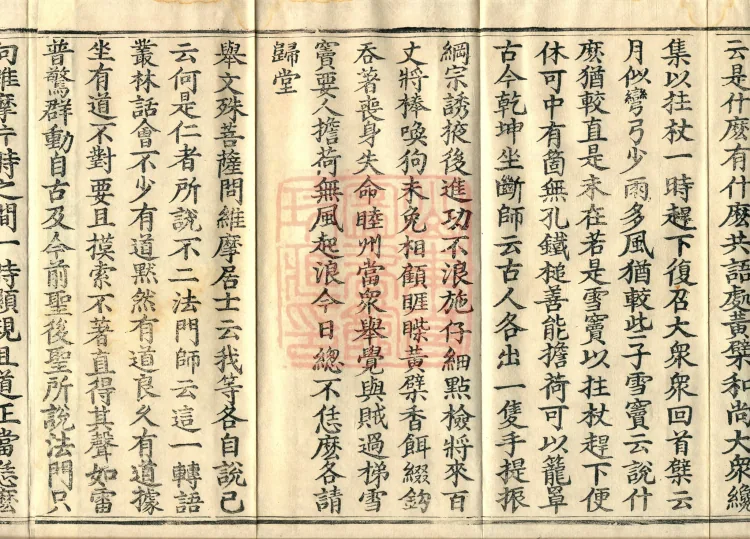 云是什麽有什麽共語處黄檗和尚大衆纔
集以拄杖一時趕下復召大衆衆回首檗云
月似彎弓少雨多風猶較些子雪竇云說什
麽猶較直是未在若是雪竇以拄杖趕下便
休可中有箇無孔鐵槌善能擔荷可以籠罩
古今乾坤坐斷師云古人各出一隻手提振
綱宗誘掖後進功不浪施仔細點檢將來百
丈將棒喚狗未免相顧睚㗼黄檗香餌綴鈎
吞著喪身失命睦州當衆舉覺與賊過梯雪
竇要人擔荷無風起浪今日總不恁麽各請
歸堂
舉文殊菩薩問維摩居士云我等各自說已
云何是仁者所說不二法門師云這一轉語
叢林話會不少有道默然有道良久有道據
坐有道不對要且摸索不著直得其聲如雷
普驚群動自古及今前聖後聖所說法門只
向維摩片時之間一時顯現且道正當恁麽